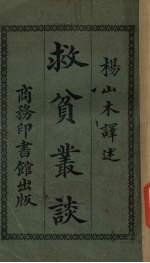 楊山木譯述
救貧叢談
商務印書館出版